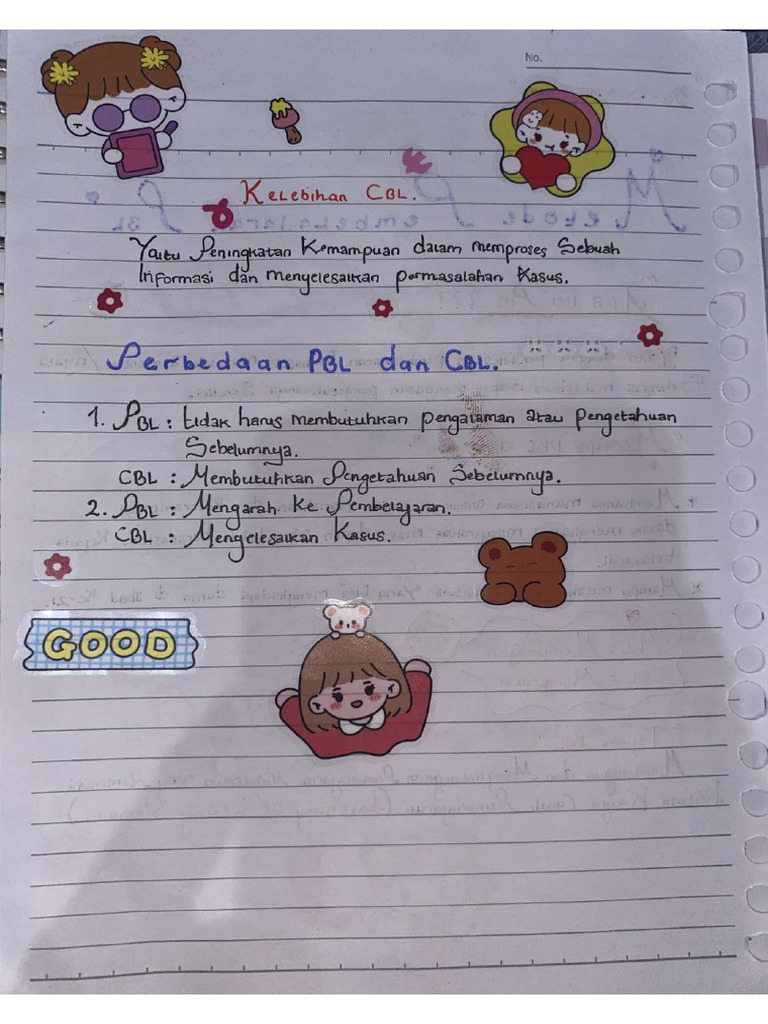 No.
Kelebihan CBL.
Yaitu Peningkatan Kemampuan dalam memproses Sebuah
Informasi dan menyelesaikan permasalahan Kasus.
Perbedaan PBL dan CBL.
1. PBL : tidak harus membutuhkan pengalaman atau pengetahuan
Sebelumnya.
CBL : Membutuhkan Pengetahuan Sebelumnya.
2. PBL : Mengarah Ke Pembelajaran.
CBL : Mengelesaikan Kasus.
GOOD